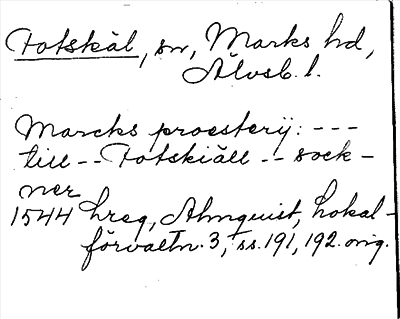 Fotskäl, sn, Marks hd,
Älvsb. l.
Marcks proesterij: ---
till -- Fotskiäll -- sock-
ner
1544 hreg, Almquist, Lokal-
förvaltn. 3, ss. 191, 192. orig.